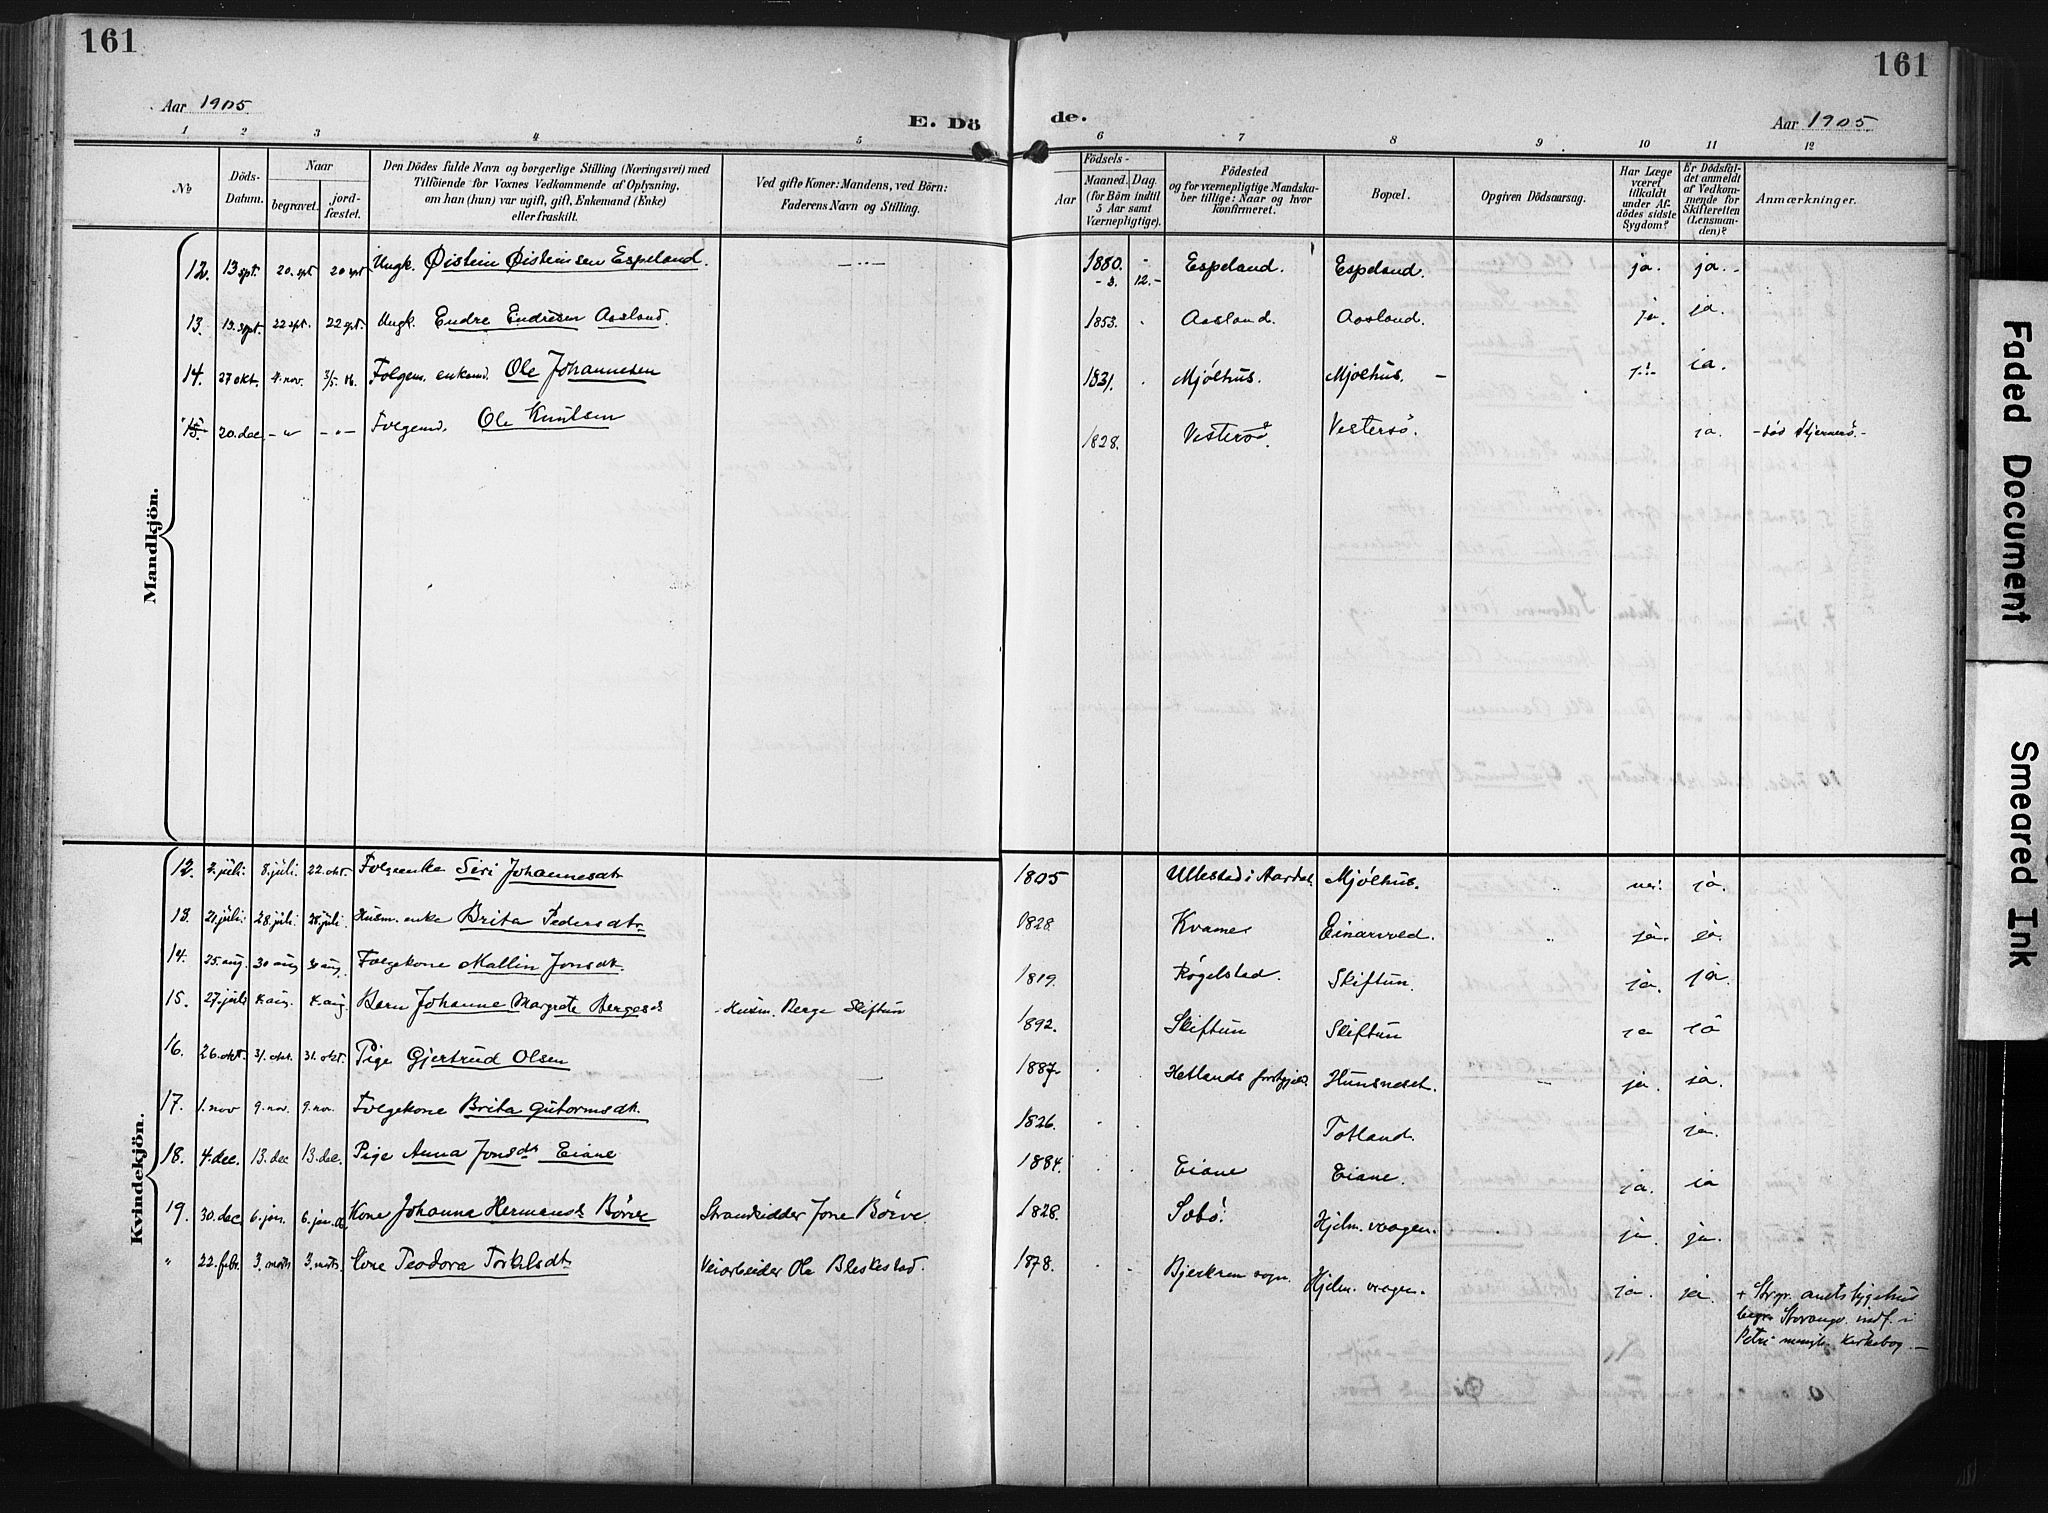 161
161
Aar 1905
E. Dö
de.
Aar 1905
1 2 3 4 5 6 7 8 9 10 11 12
No
Döds-Datum.
Naar
begravet.
jord-fæstet.
Den Dödes fulde Navn og borgerlige Stilling (Næringsvei) med
Tilföiende for Voxnes Vedkommende af Oplysning,
om han (hun) var ugift, gift, Enkemand (Enke)
eller fraskilt.
Ved gifte Koner: Mandens, ved Börn:
Faderens Navn og Stilling.
Födsels-
Aar
Maaned. Dag.
(for Börn indtil
5 Aar samt
Værnepligtige).
Födested
og for værnepligtige Mandska-
ber tillige: Naar og hvor
konfirmeret.
Bopæl.
Opgiven Dödsaarsag.
Har Læge
været
tilkaldt
under Af-
dödes sidste
Sygdom?
Er Dödsfal-
det anmeldt
af Vedkom-
mende for
Skifteretten
(Lensman-
den)?
Anmærkninger.
Mandkjön.
12. 13 spt. 20. spt 20 spt Ungk. Øistein Øisteinsen Espeland. 1880. - 3. 12.- Espeland. Espeland. ja. ja.
13. 19. spt. 22 spt. 22 spt. Ungk. Endre Endresen Aasland. 1853. Aasland. Aasland. ja. ja.
14. 27 okt. 4. nov. 3/5. 06. Folgem. enkemd. Ole Johannesen 1831. Mjölhus. Mjölhus. ja
15. 20. dec. - " - " - Folgemd. Ole Knutsen 1828. Vestersö. Vestersö. ja. - död Stjernerö. -
Kvindekjön.
12. 2. juli. 8. juli. 22. okt. Folgeenke Siri Johannesdt. 1805 Ullestad i Aardal. Mjølhus. nei. ja.
13. 21. juli. 28. juli. 28. juli. Husm. enke Brita Pedersdtr. 1828. Kvame Einarved. ja. ja.
14. 25. aug. 30 aug 30 aug. Folgekone Mallin Jonsdt. 1819. Røgelstad. Skiftun. ja. ja.
15. 27. juli 4. aug. 4. aug. Barn Johanne Margrete Bergesdt - Husm. Berge Skiftun 1892. Skiftun Skiftun ja ja
16. 26. okt. 31. okt. 31. okt. Pige Gjertrud Olsen 1887. Hetlands prstgjeld. Hunsneset. ja. ja.
17. 1. nov 9. nov. 9. nov. Folgekone Brita Gutormsdt. 1826. Totland. ja.
18. 4. dec. 13. dec 13. dec. Pige Anna Jonsdt Eiane 1884. Eiane Eiane. ja. ja
19. 30. dec. 6. jan. 6. jan. 06 Kone Johanna Hermansdt. Börve Strandsidder Jone Börve. 1828. Sobö. Hjelm. vaagen. ja. ja.
" 22. febr. 3. marts 3. marts. Kone Teodora Torkelsdt. Veiarbeider Ole Bleskestad. 1878. Bjerkrem sogn. Hjelm. vaagen. ja. ja.
+ Stvgr. amts sygehus
begr. Stavanger. indf. i
Petri menigh. Kirkebog. -
Faded Document
Smeared Ink